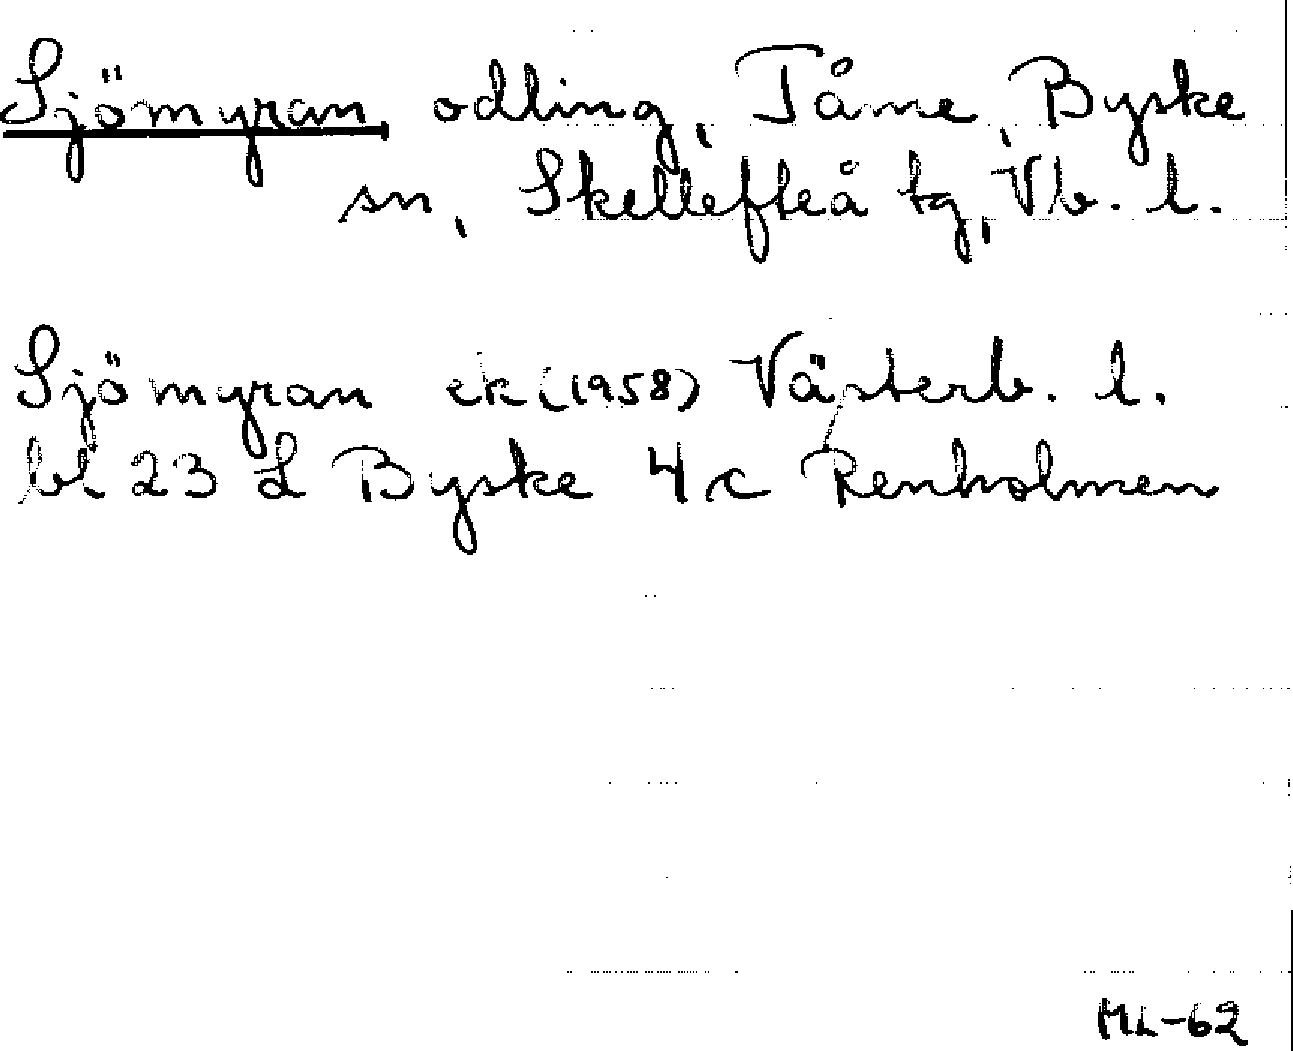 Sjömyran, odling, Tåme, Byske
sn, Skellefteå tg, Vb. l.
Sjömyran ek (1958) Västerb. l.
bl 23 L Byske 4c Renholmen
ML-62